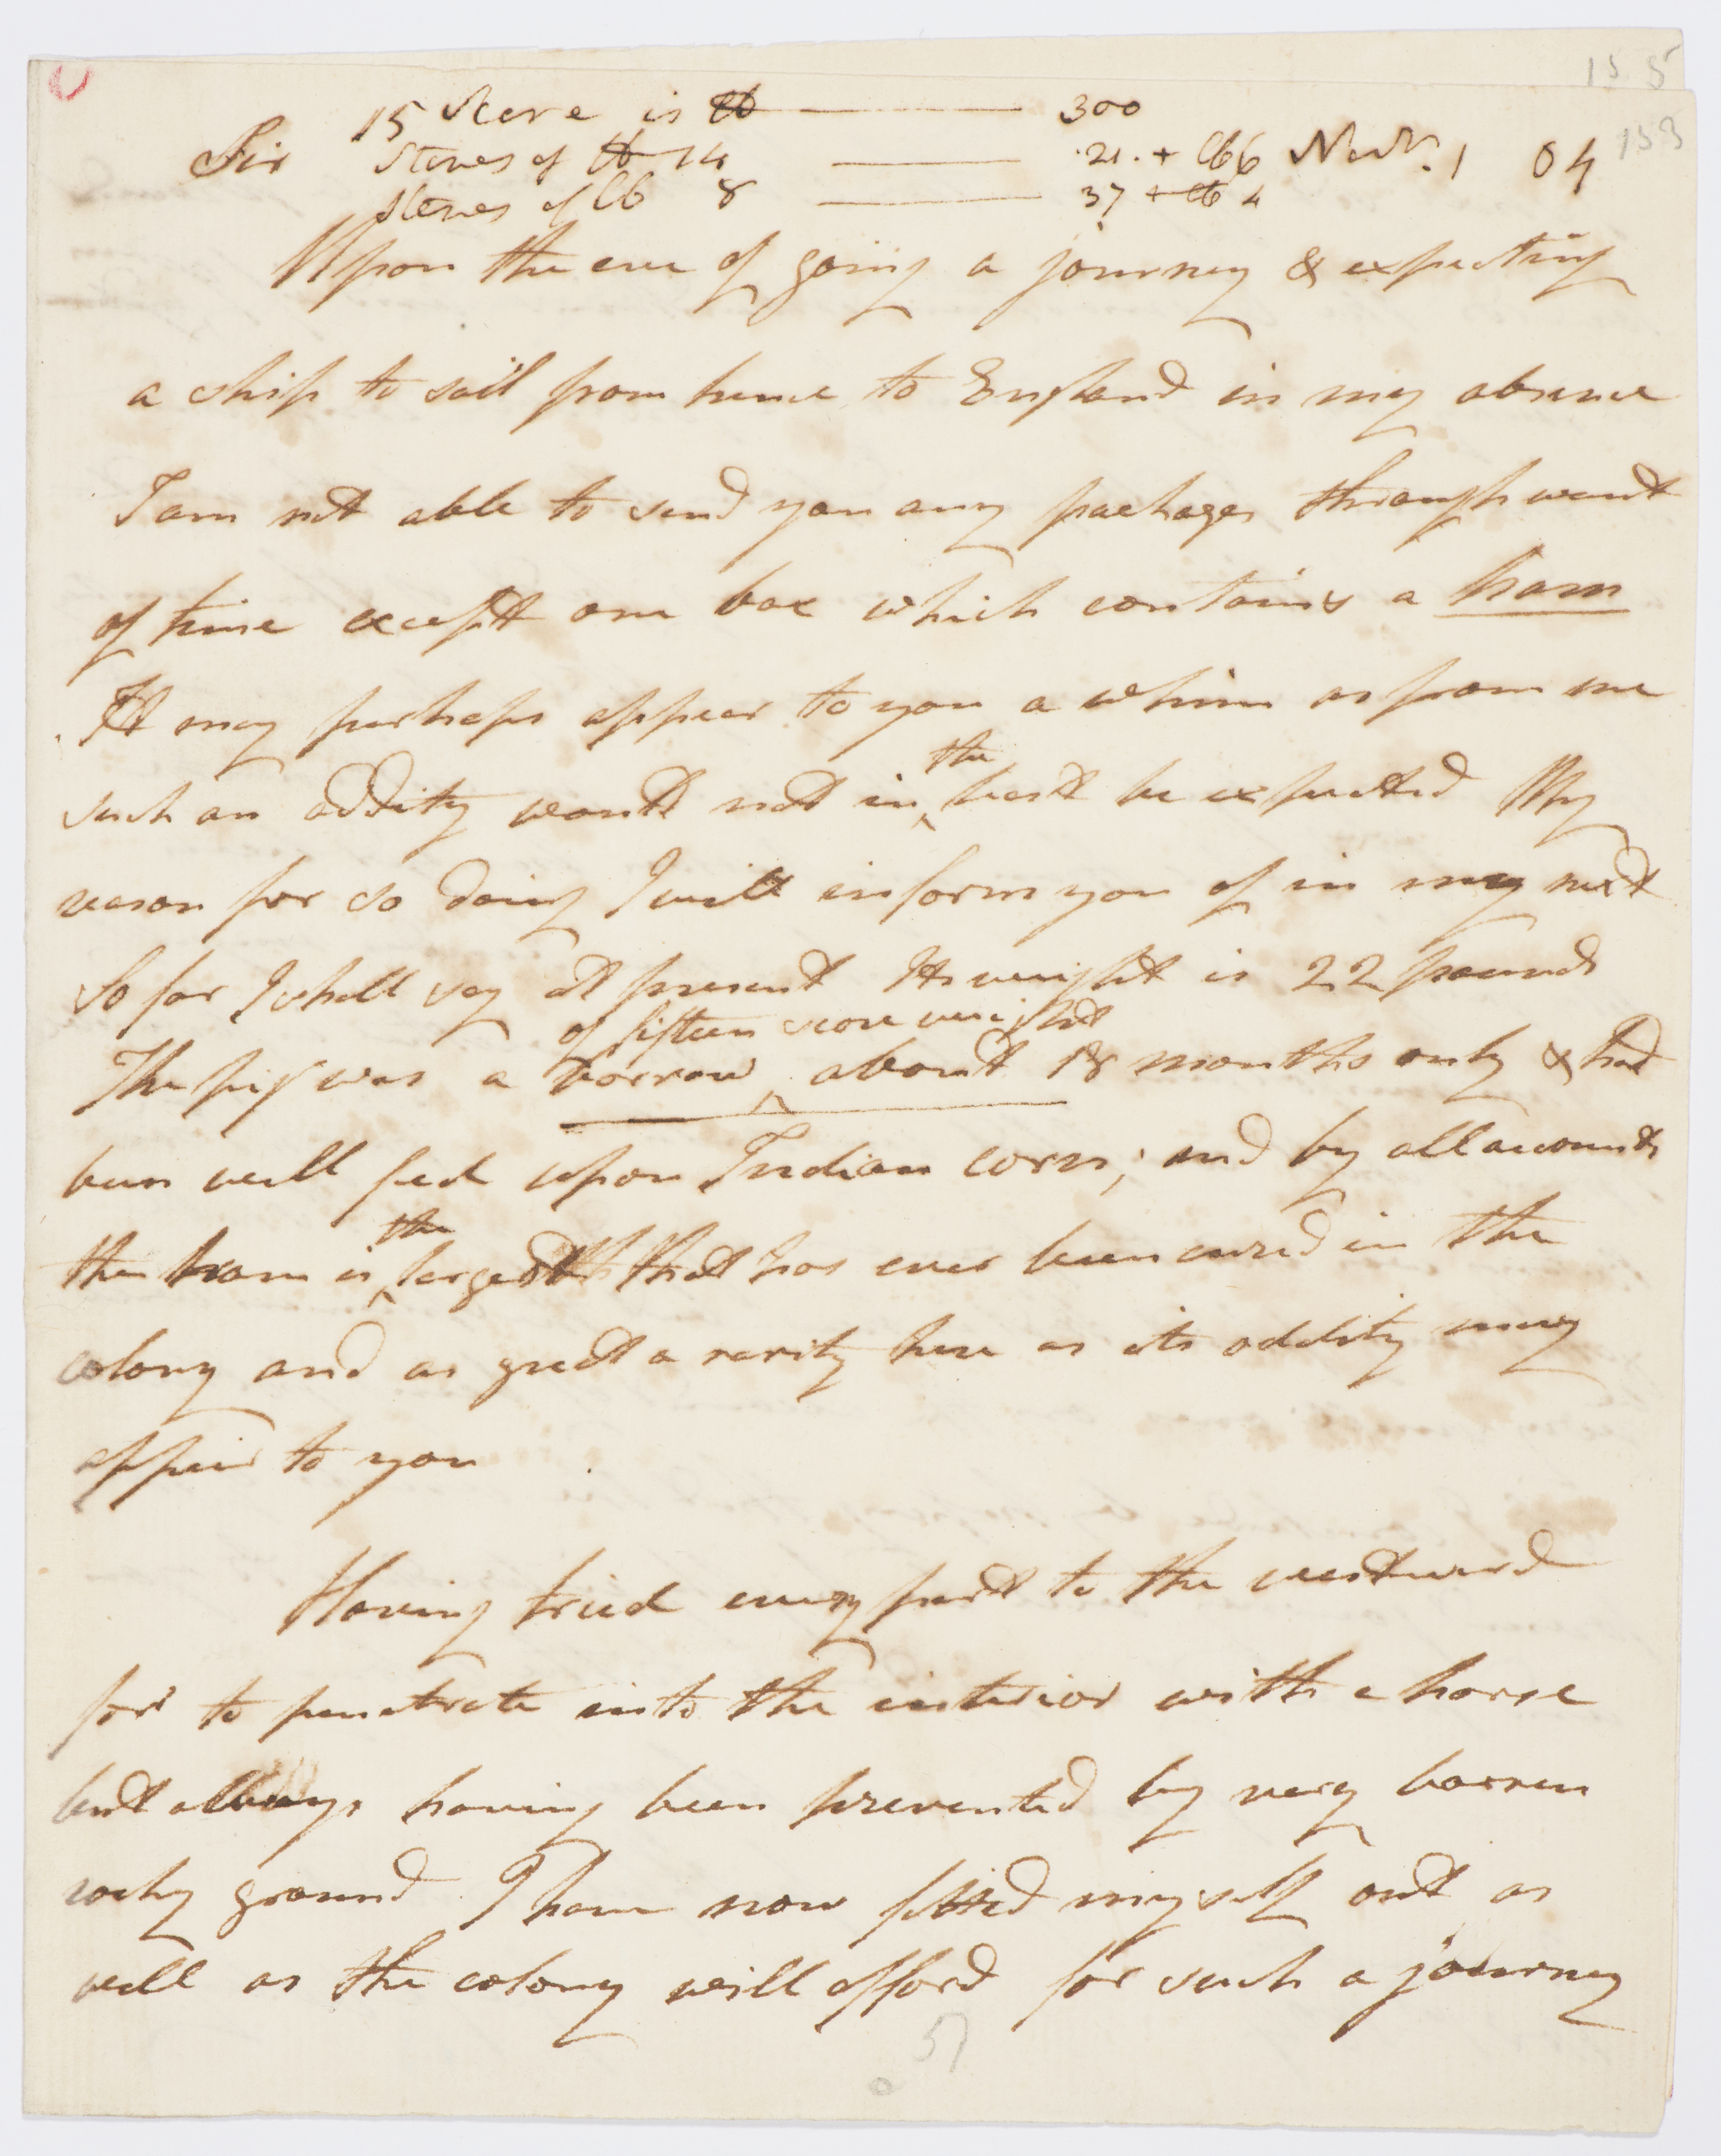 155
153
15 Score is lb — 300
Sir Stones of lb 14 — 21. + lb 6 Novr. 1 04
Stones of lb 8 — 37 + lb 4
Upon the eve of going a journey & expecting
a ship to sail from hence to England in my absence
I am not able to send you any packages through want
of time except one box which contains a ham
It may perhaps appear to you a whim as from me
such an oddity would not in the least be expected My
reason for so doing I will inform you of in my next
So far I shall say at present Its weight is 22 pounds
of fifteen score weight
The pig was a borrow about 18 months only & had
been well fed upon Indian corn; and by all accounts
the ham is the largest that has ever been cured in the
colony and as great a rarity here as its oddity may
appear to you
Having tried every part to the westward
for to penetrate into the interior with a horse
but allways having been prevented by very barren
rocky ground I have now fitted myself out as
well as the colony will afford for such a journey